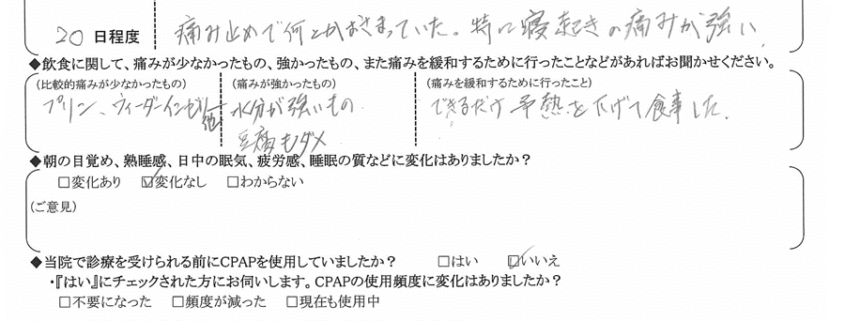 20 日程度 痛み止めで何とかおさまっていた。特に寝起きの痛みが強い
◆飲食に関して、痛みが少なかったもの、強かったもの、また痛みを緩和するために行ったことなどがあればお聞かせください。
(比較的痛みが少なかったもの) (痛みが強かったもの) (痛みを緩和するために行ったこと)
プリン、ウィーダーインゼリー他 水分が強いもの できるだけ予熱を下げて食事した。
豆腐もダメ
◆朝の目覚め、熟睡感、日中の眠気、疲労感、睡眠の質などに変化はありましたか?
□変化あり ☑変化なし □わからない
(ご意見)
◆当院で診療を受けられる前にCPAPを使用していましたか? □はい ☑いいえ
・『はい』にチェックされた方にお伺いします。CPAPの使用頻度に変化はありましたか?
□不要になった □頻度が減った □現在も使用中